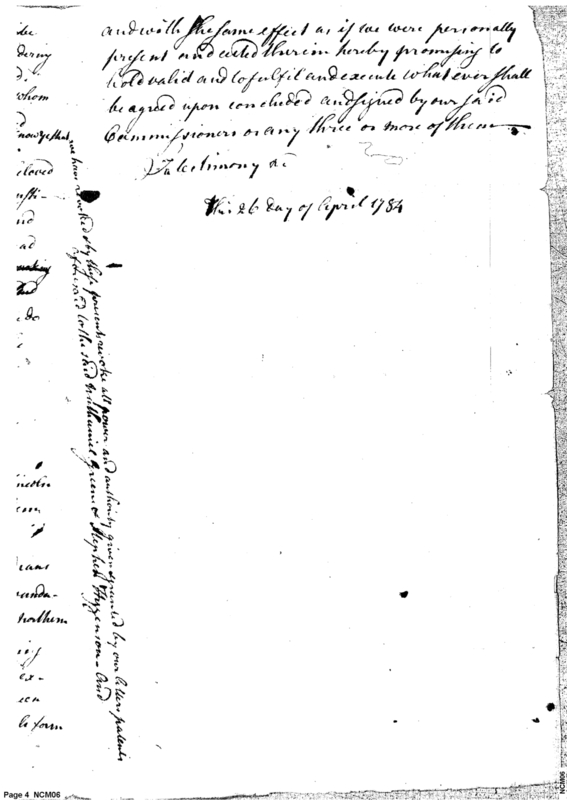 and with the same effect as if we were personally
present and acted therein hereby promising to
hold valid and to fulfil and execute what ever shall
be agreed upon concluded and signed by our said
Commissioners or any three or more of them
In testimony &c
this 26 day of April 1784
we have revoked & by these presents revoke all power and authority given & granted by our letters patents
aforesaid to the said Nathaniel Greene & Stephen Higgenson - And
dering
d.
whom
know ye that
eloved
nd
ad
making
do
incoln
vans
northern
ing
ex-
een
ls form
Page 4 NCM06
NCM06